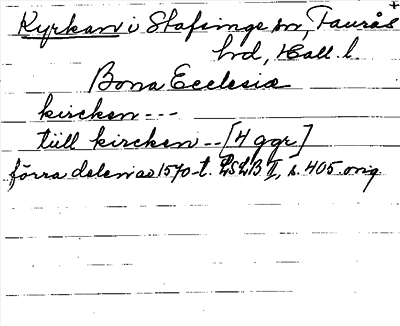 Kyrkan i Stafsinge sn, Faurås +
hd, Hall. l.
Bona Ecclesia
kircken ---
tüll kircken -- [4 ggr]
förra delen av 1570-t. LSLB I, s. 405. orig